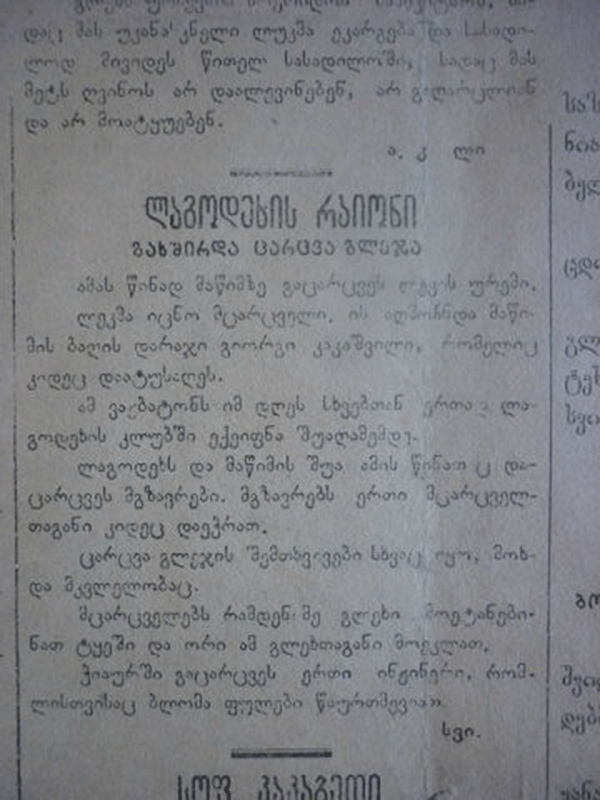 დაც მას უკანასკნელი ლუკმა ეკარგება და სასადი-
ლოდ მივიდეს წითელ სასადილოში, სადაც მას
მეტს ღვინოს არ დაალევინებენ, არ გაღარცლიან
და არ მოატყუებენ.
ა. კ ლი
ლაგოდეხის რაიონი
გახშირდა ცარცვა გლეჯა
ამას წინად მაწიმზე გაცარცვეს ლეკის ურემი.
ლეკმა იცნო მცარცველი. ის აღმოჩნდა მაწი-
მის ბაღის დარაჯი გიორგი კაკაშვილი, რომელიც
კიდეც დაატუსაღეს.
ამ ვაჟბატონს იმ დღეს სხვებთან ერთად ლა-
გოდეხის კლუბში ექეიფნა შუაღამემდე.
ლაგოდეხს და მაწიმის შუა ამის წინათ ც და-
ცარცვეს მგზავრები. მგზავრებს ერთი მცარცველ-
თაგანი კიდეც დაეჭრათ.
ცარცვა გლეჯის შემთხვევები სხვაც იყო, მოხ-
და მკვლელობაც.
მცარცველებს რამდენიმე გლეხი მოეტანები-
ნათ ტყეში და ორი ამ გლეხთაგანი მოეკლათ.
ჭიაურში გაცარცვეს ერთი ინჟინერი, რომ-
ლისთვისაც ბლომა ფულები წაურთმევიათ.
სვი.
სოფ. კაკაბეთი